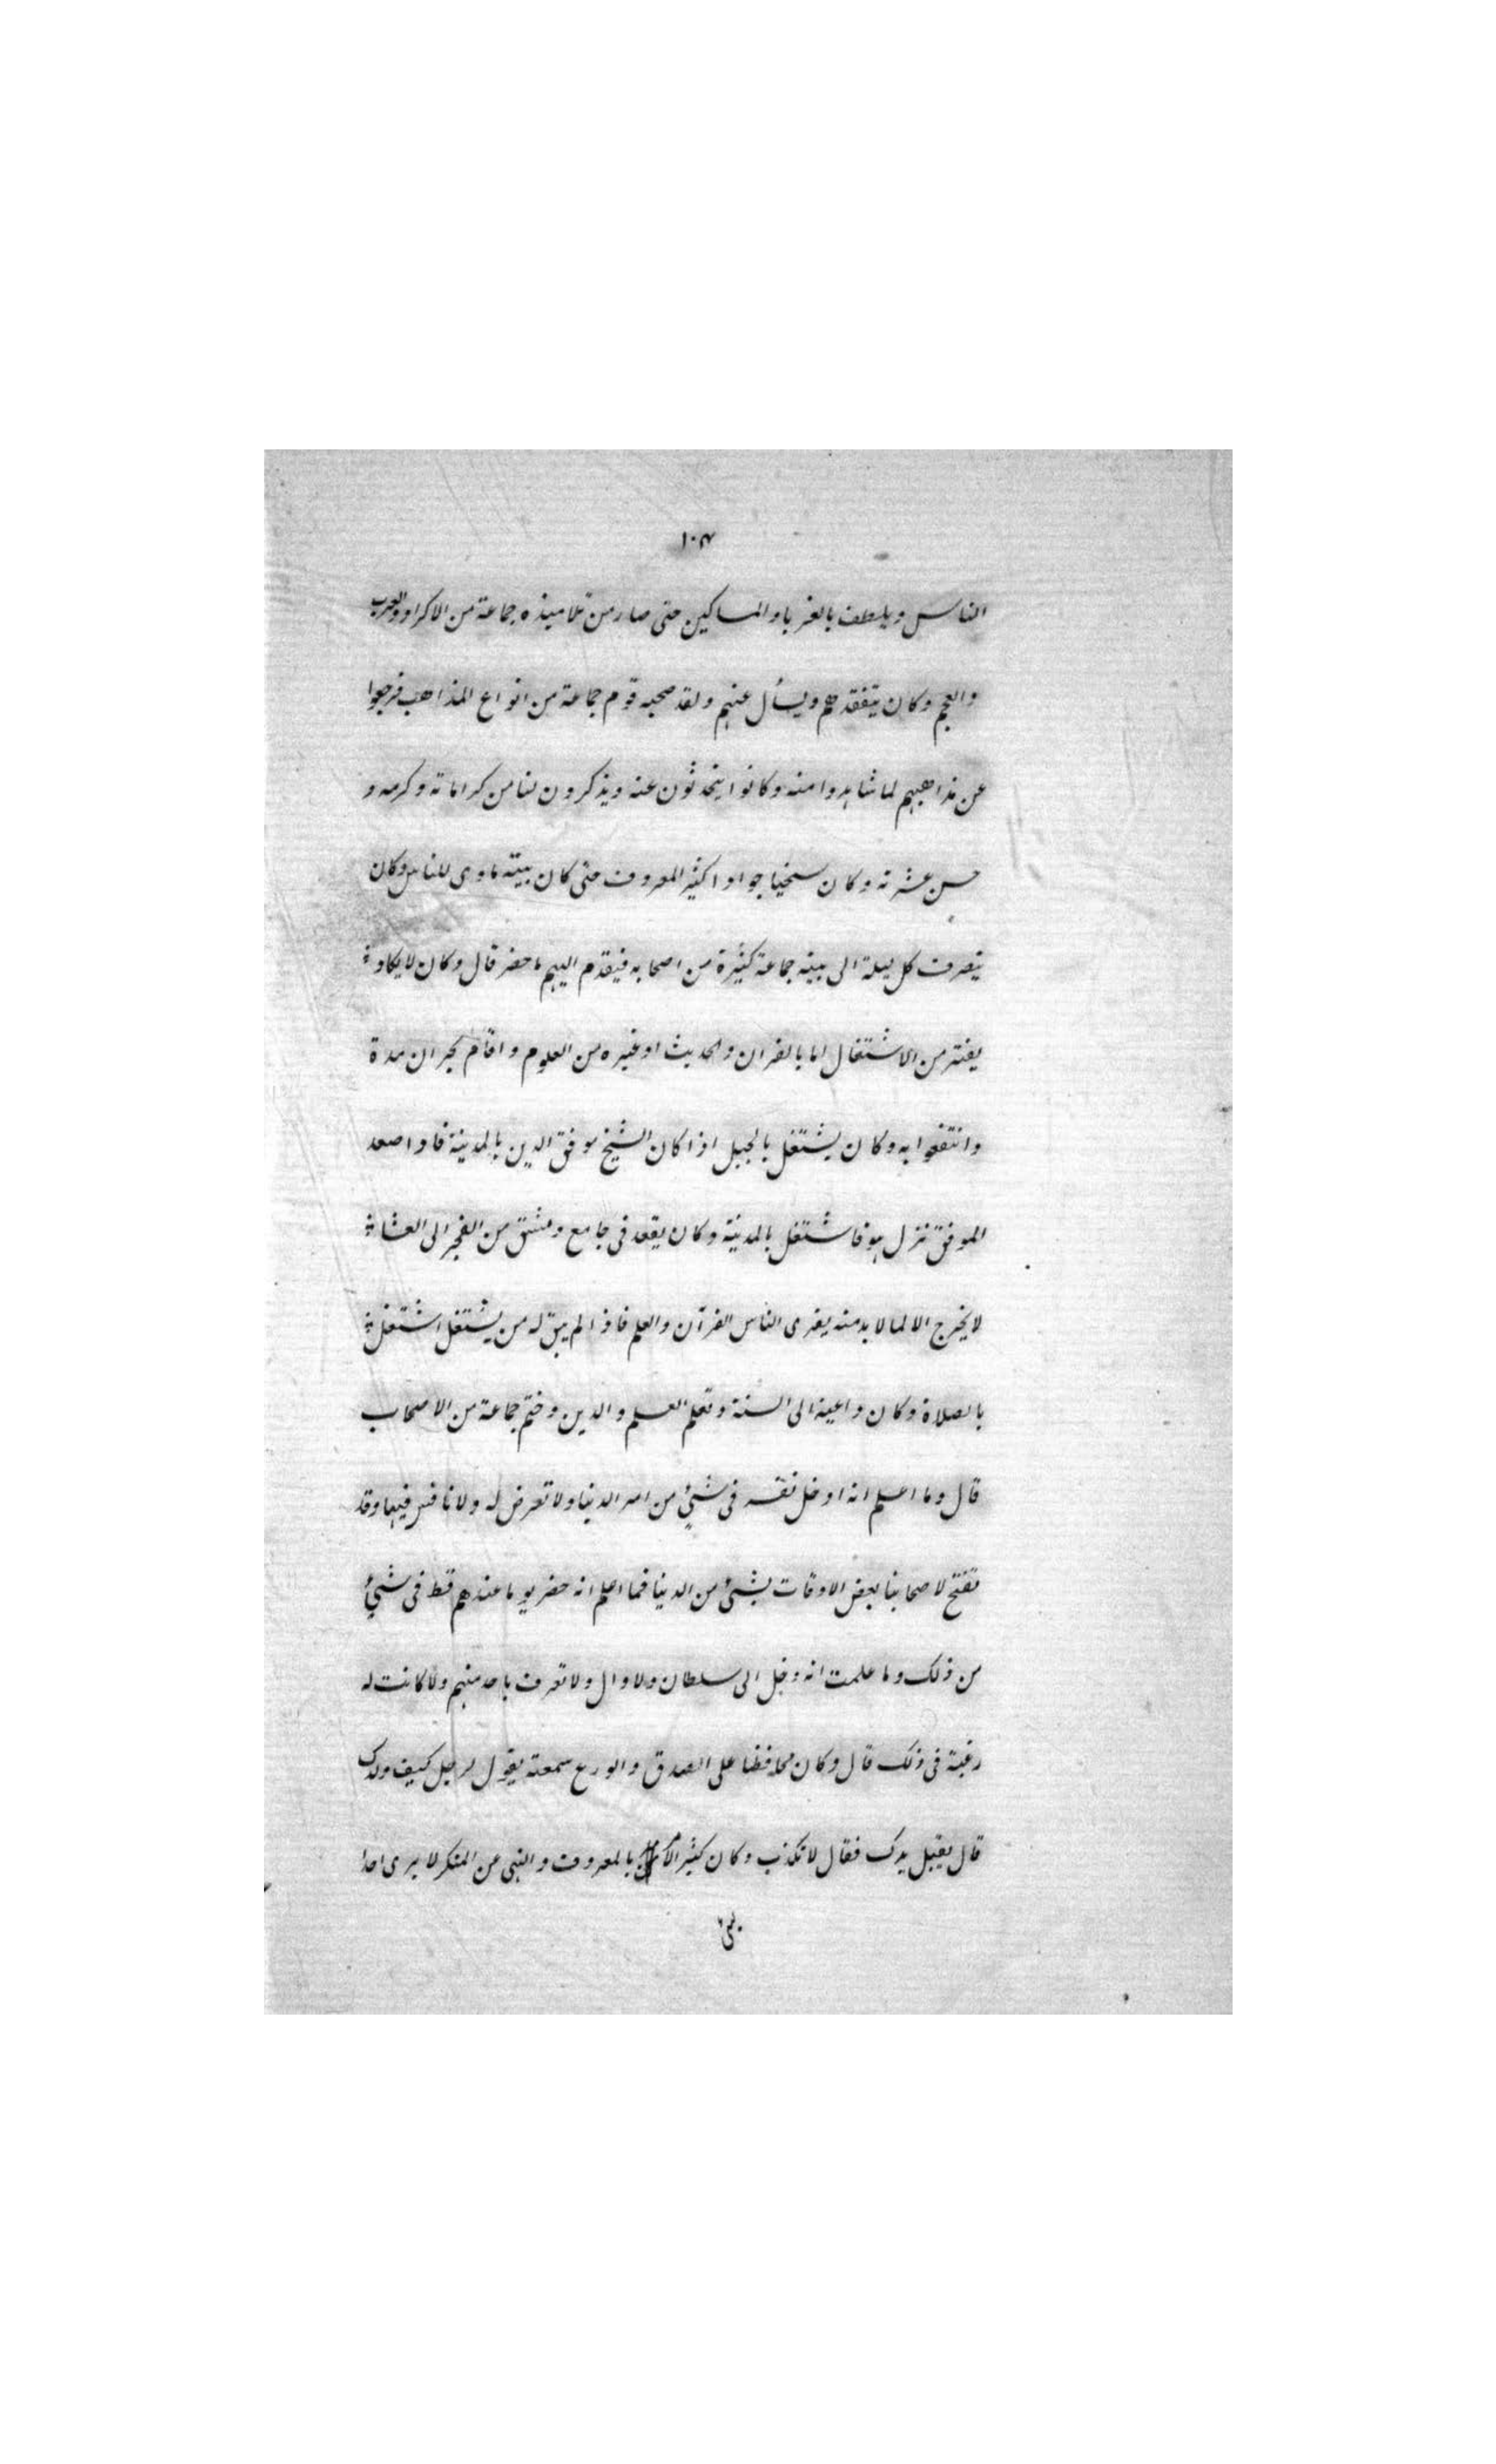 ١٠٣
الناس ويلطف بالغربا والمساكين حتى صار من تلاميذه جماعة من الاكراد والعرب
والعجم وكان يتفقدهم ويسأل عنهم ولقد صحبه قوم جماعة من انواع المذاهب فرجعوا
عن مذاهبهم لما شاهدوا منه وكانوا يتحدثون عنه ويذكرون لنا من كراماته وكرمه و
حسن عشرته وكان سخيا جوادا كثير المعروف حتى كان بيته ماوى للناس وكان
ينصرف كل ليلة الى بيته جماعة كثيرة من اصحابه فيقدم اليهم ما حضر قال وكان لا يكاد
يفتر من الاشتغال اما بالقران والحديث او غيره من العلوم واقام بحران مدة
وانتفعوا به وكان يشتغل بالجبل اذا كان الشيخ موفق الدين بالمدينة فاذا صعد
الموفق نزل هو فاشتغل بالمدينة وكان يقعد في جامع دمشق من الفجر الى العشاء
لا يخرج الا لما لا بد منه يقرى الناس القرآن والعلم فاذا لم يبق له من يشتغل اشتغل
بالصلاة وكان داعية الى السنة وتعلم العلم والدين وختم جماعة من الاصحاب
قال وما اعلم انه ادخل نفسه في شيئ من امر الدنيا ولا تعرض له ولا نافس فيها وقد
تفتح لاصحابنا بعض الاوقات بشيئ من الدنيا فما اعلم انه حضر يوما عندهم قط في شيئ
من ذلك وما علمت انه دخل الى سلطان ولا وال ولا تعرف باحد منهم ولا كانت له
رغبة في ذلك قال وكان محافظا على الصدق والورع سمعته يقول لرجل كيف ولدك
قال يقبل يدك فقال لا تكذب وكان كثير الامر بالمعروف والنهى عن المنكر لا يرى احدا